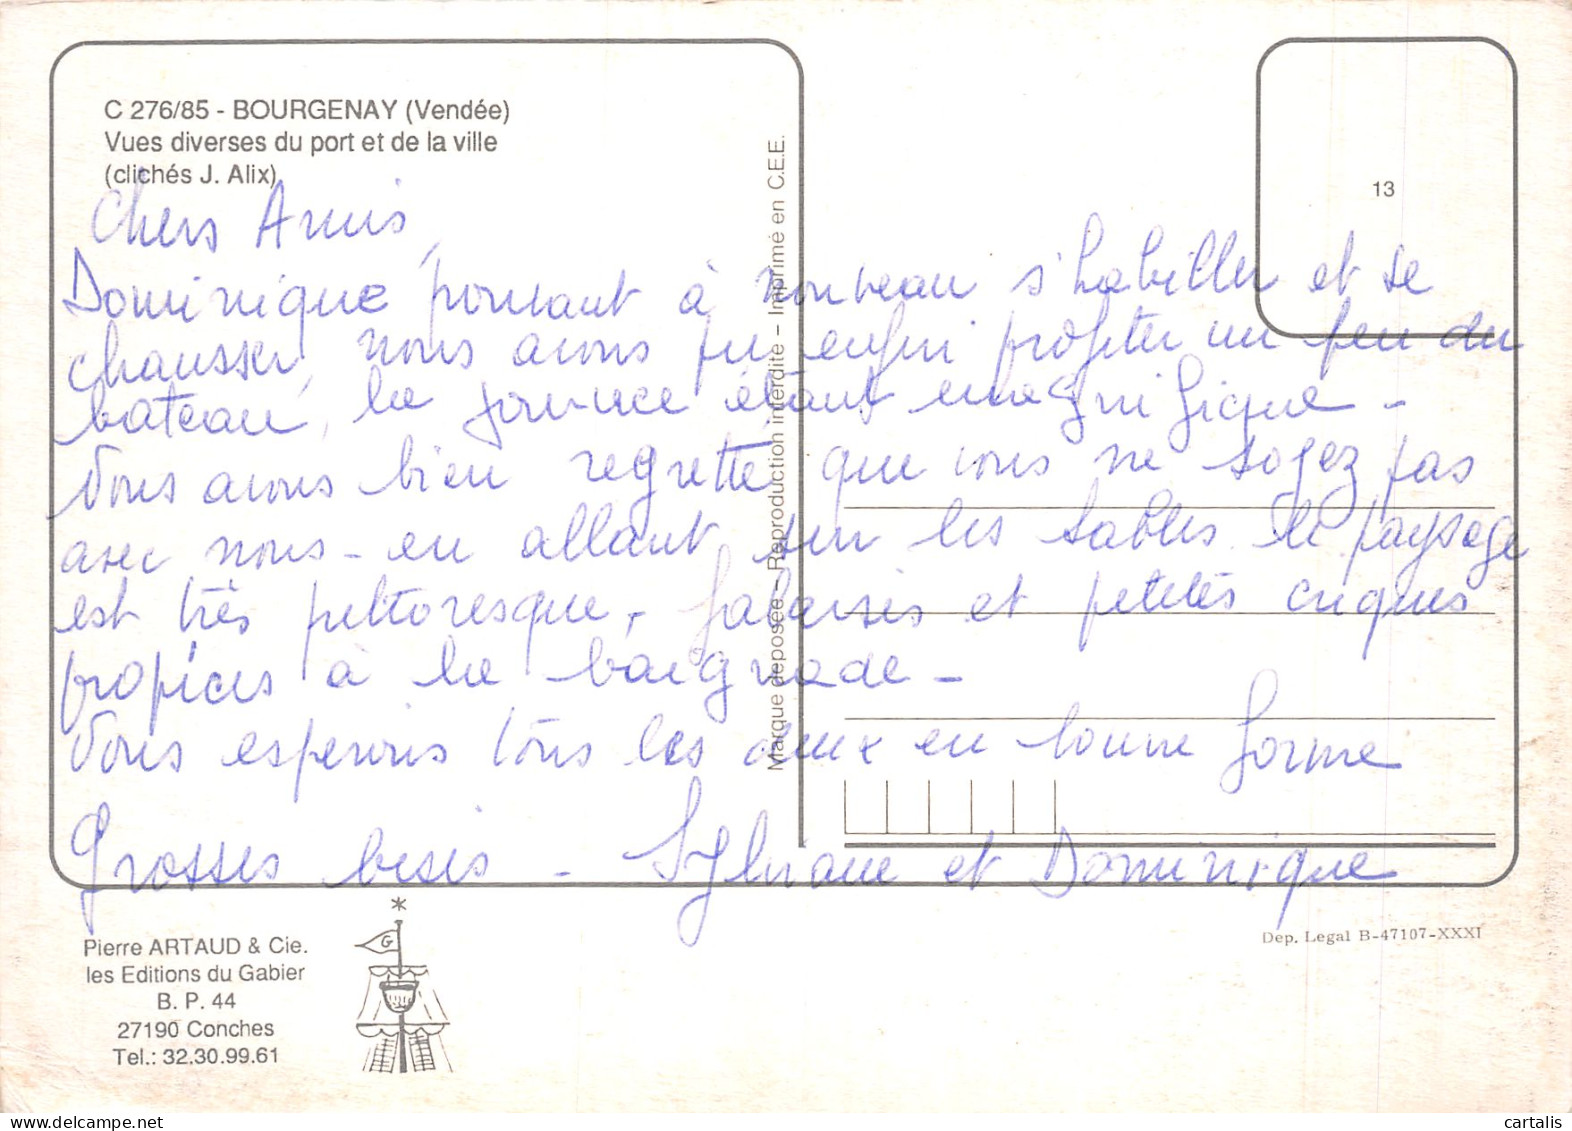 C 276/85 - BOURGENAY (Vendée)
Vues diverses du port et de la ville
(clichés J. Alix)
13
Marque deposée - Reproduction interdite - Imprimé en C.E.E.
Chers Amis,
Dominique pouvant à nouveau s'habiller et se
chausser, nous avons pu enfin profiter un peu du
bateau, la journée étant magnifique -
Nous avons bien regretté que vous ne soyez pas
avec nous - en allant sur les Sables le paysage
est très pittoresque, falaises et petites criques
propices à la baignade -
Vous esperons tous les deux en bonne forme
Grosses bises - Sylviane et Dominique
Pierre ARTAUD & Cie.
les Editions du Gabier
B. P. 44
27190 Conches
Tel.: 32.30.99.61
G
Dep. Legal B-47107-XXXI
cartalis
https://www.delcampe.net